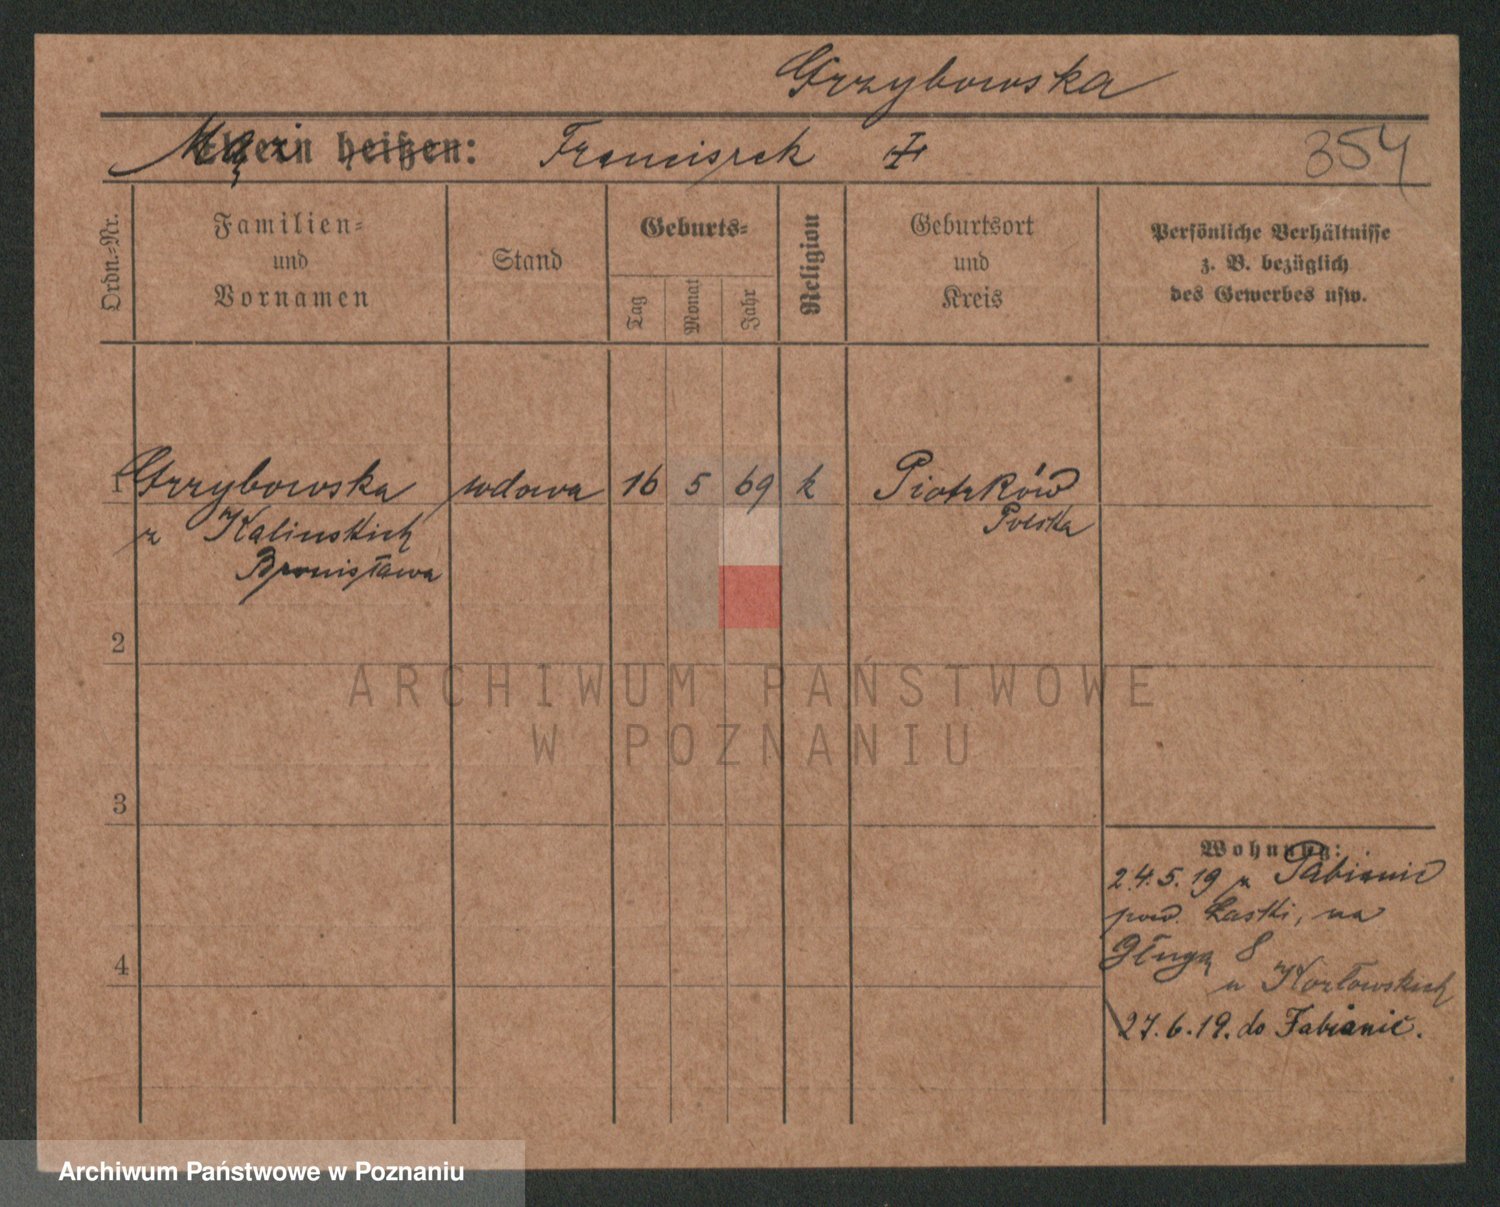 Grzybowska
Mąż Eltern heißen: Franciszek
354
Ordn.-Nr.
Familien-
und
Vornamen
Stand
Geburts-
Tag
Monat
Jahr
Religion
Geburtsort
und
Kreis
Persönliche Verhältnisse
z. B. bezüglich
des Gewerbes usw.
1 Grzybowska wdowa 16 5 69 k Piotrków
z Kalinskich Polska
Bronisława
2
ARCHIWUM PAŃSTWOWE
W POZNANIU
3
Wohnung:
24.5.19 z Pabianic
pow. Łaski, na
Długą 8
4
u Kozłowskich
27.6.19. do Pabianic.
Archiwum Państwowe w Poznaniu